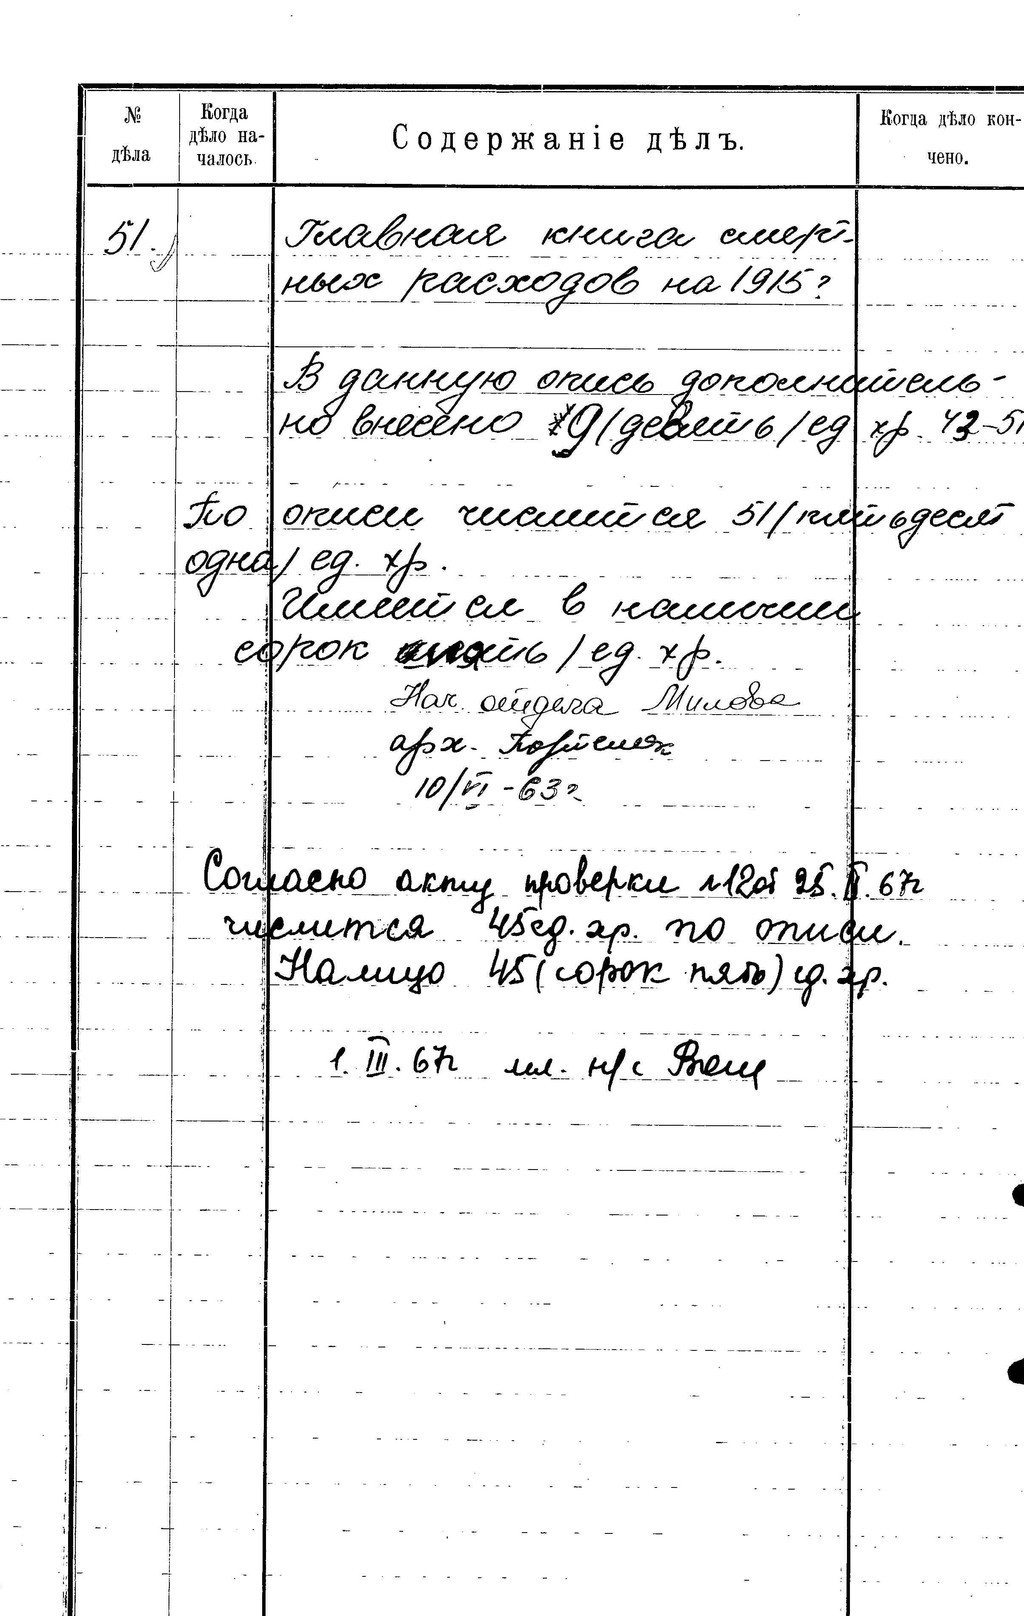 № дѣла
Когда дѣло началось.
Содержаніе дѣлъ.
Когда дѣло кончено.
51.
Главная книга смет-
ных расходов на 1915 г
В данную опись дополнитель-
но внесено 9 /девять/ ед хр. 43-51
По описи числится 51 /пятьдесят
одна/ ед. хр.
Имеется в наличии
сорок пять / ед. хр.
Нач. отдела Милова
арх.
10/VI-63 г
Согласно акту проверки №12 от 25. II. 67г
числится 45 ед. хр. по описи.
Налицо 45 (сорок пять) ед. хр.
1. III. 67г мл. н/с